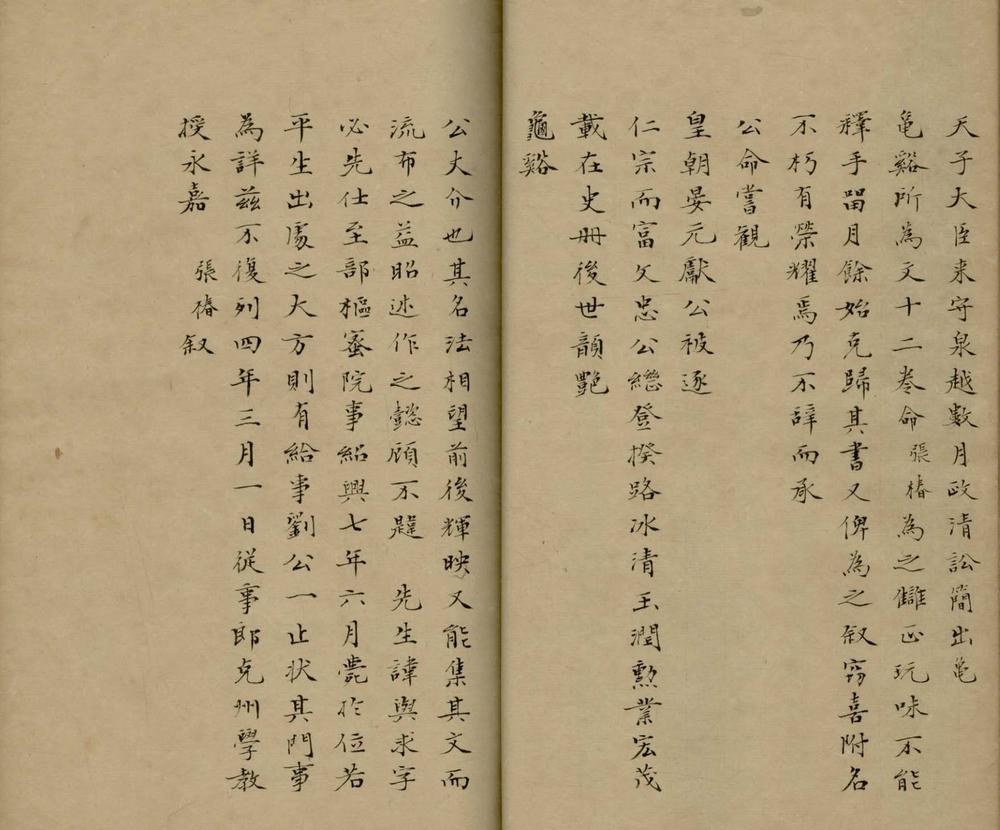 天子大臣来守泉越數月政清訟簡出亀
亀谿所為文十二卷命張椿為之讎正玩味不能
釋手畱月餘始克歸其書又俾為之叙窃喜附名
不朽有榮耀焉乃不辭而承
公命嘗観
皇朝晏元獻公被逐
仁宗而富文忠公繼登揆路冰清玉潤勲業宏茂
載在史冊後世韻艷
龜谿
公丈介也其名法相望前後輝映又能集其文而
流布之益昭述作之懿顧不韙 先生諱與求字
必先仕至部樞宻院事紹興七年六月薨於位若
平生出處之大方則有給事劉公一止状其門事
為詳兹不復列四年三月一日從事郎克州學教
授永嘉張椿叙